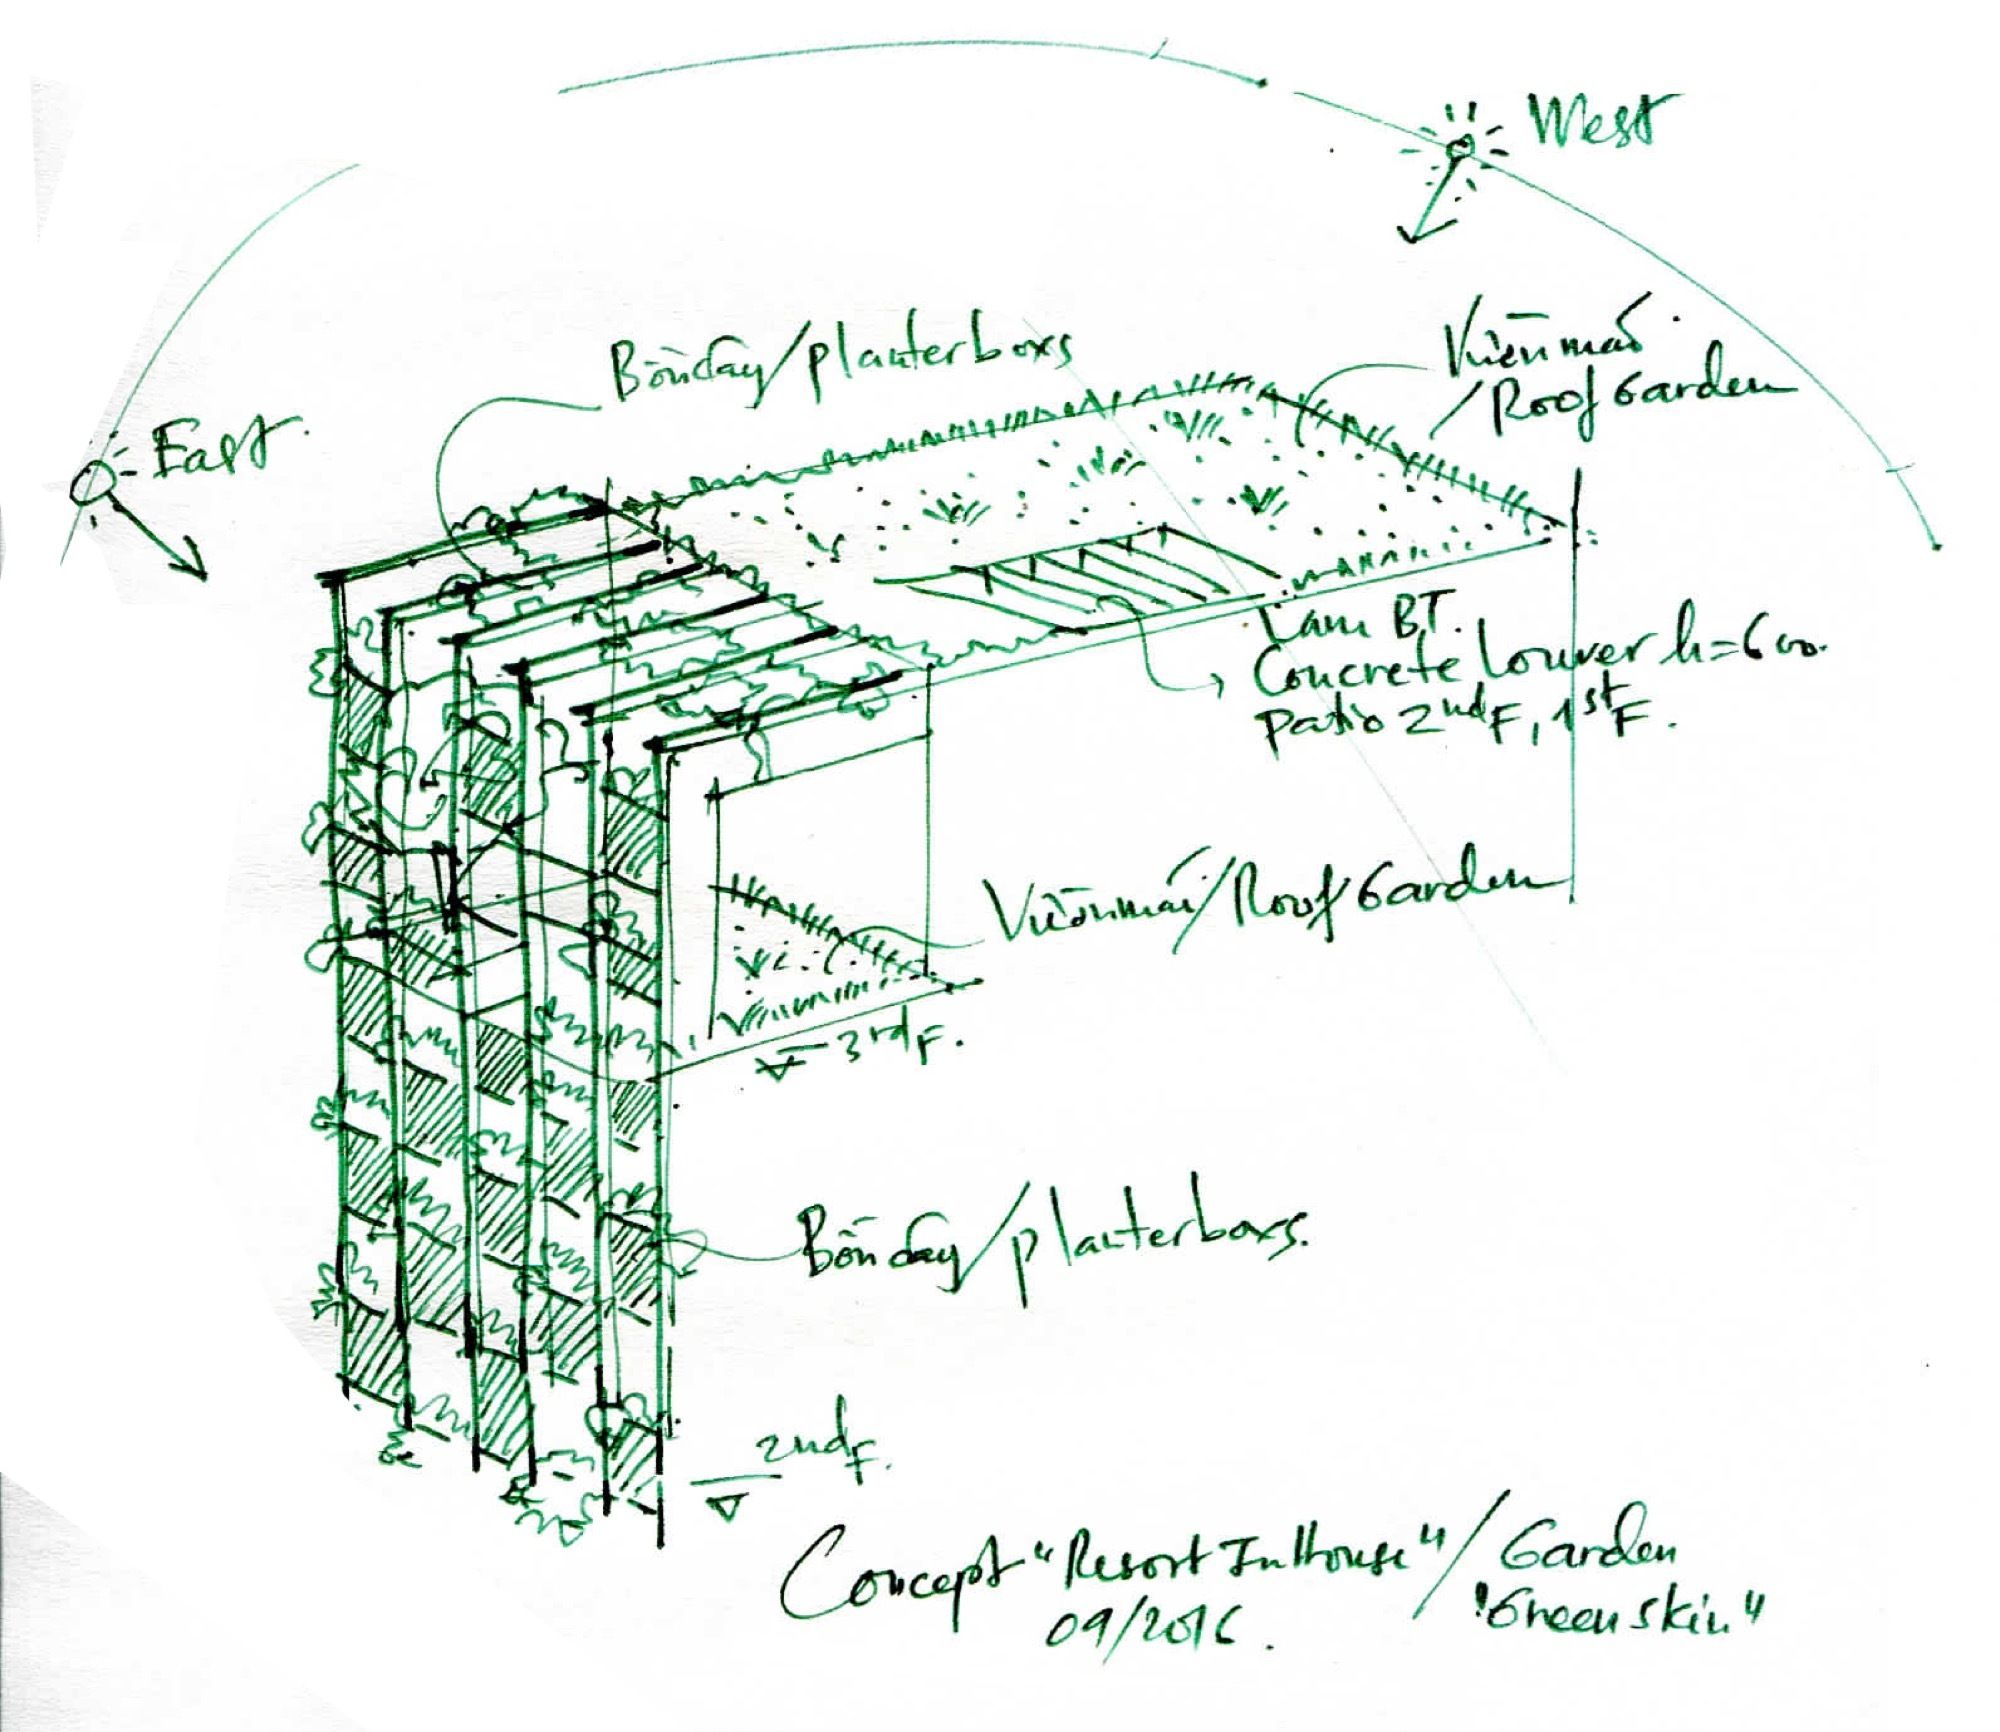 West
Bồn cây/planterboxs
Vườn mái
/Roof Garden
East
Lam BT.
Concrete Louver h=600.
Patio 2nd F, 1st F.
Vườn mái/Roof Garden
3rd F.
Bồn cây/planterboxs.
2nd F.
Concept "Resort In House" / Garden
"Green skin"
09/2016.